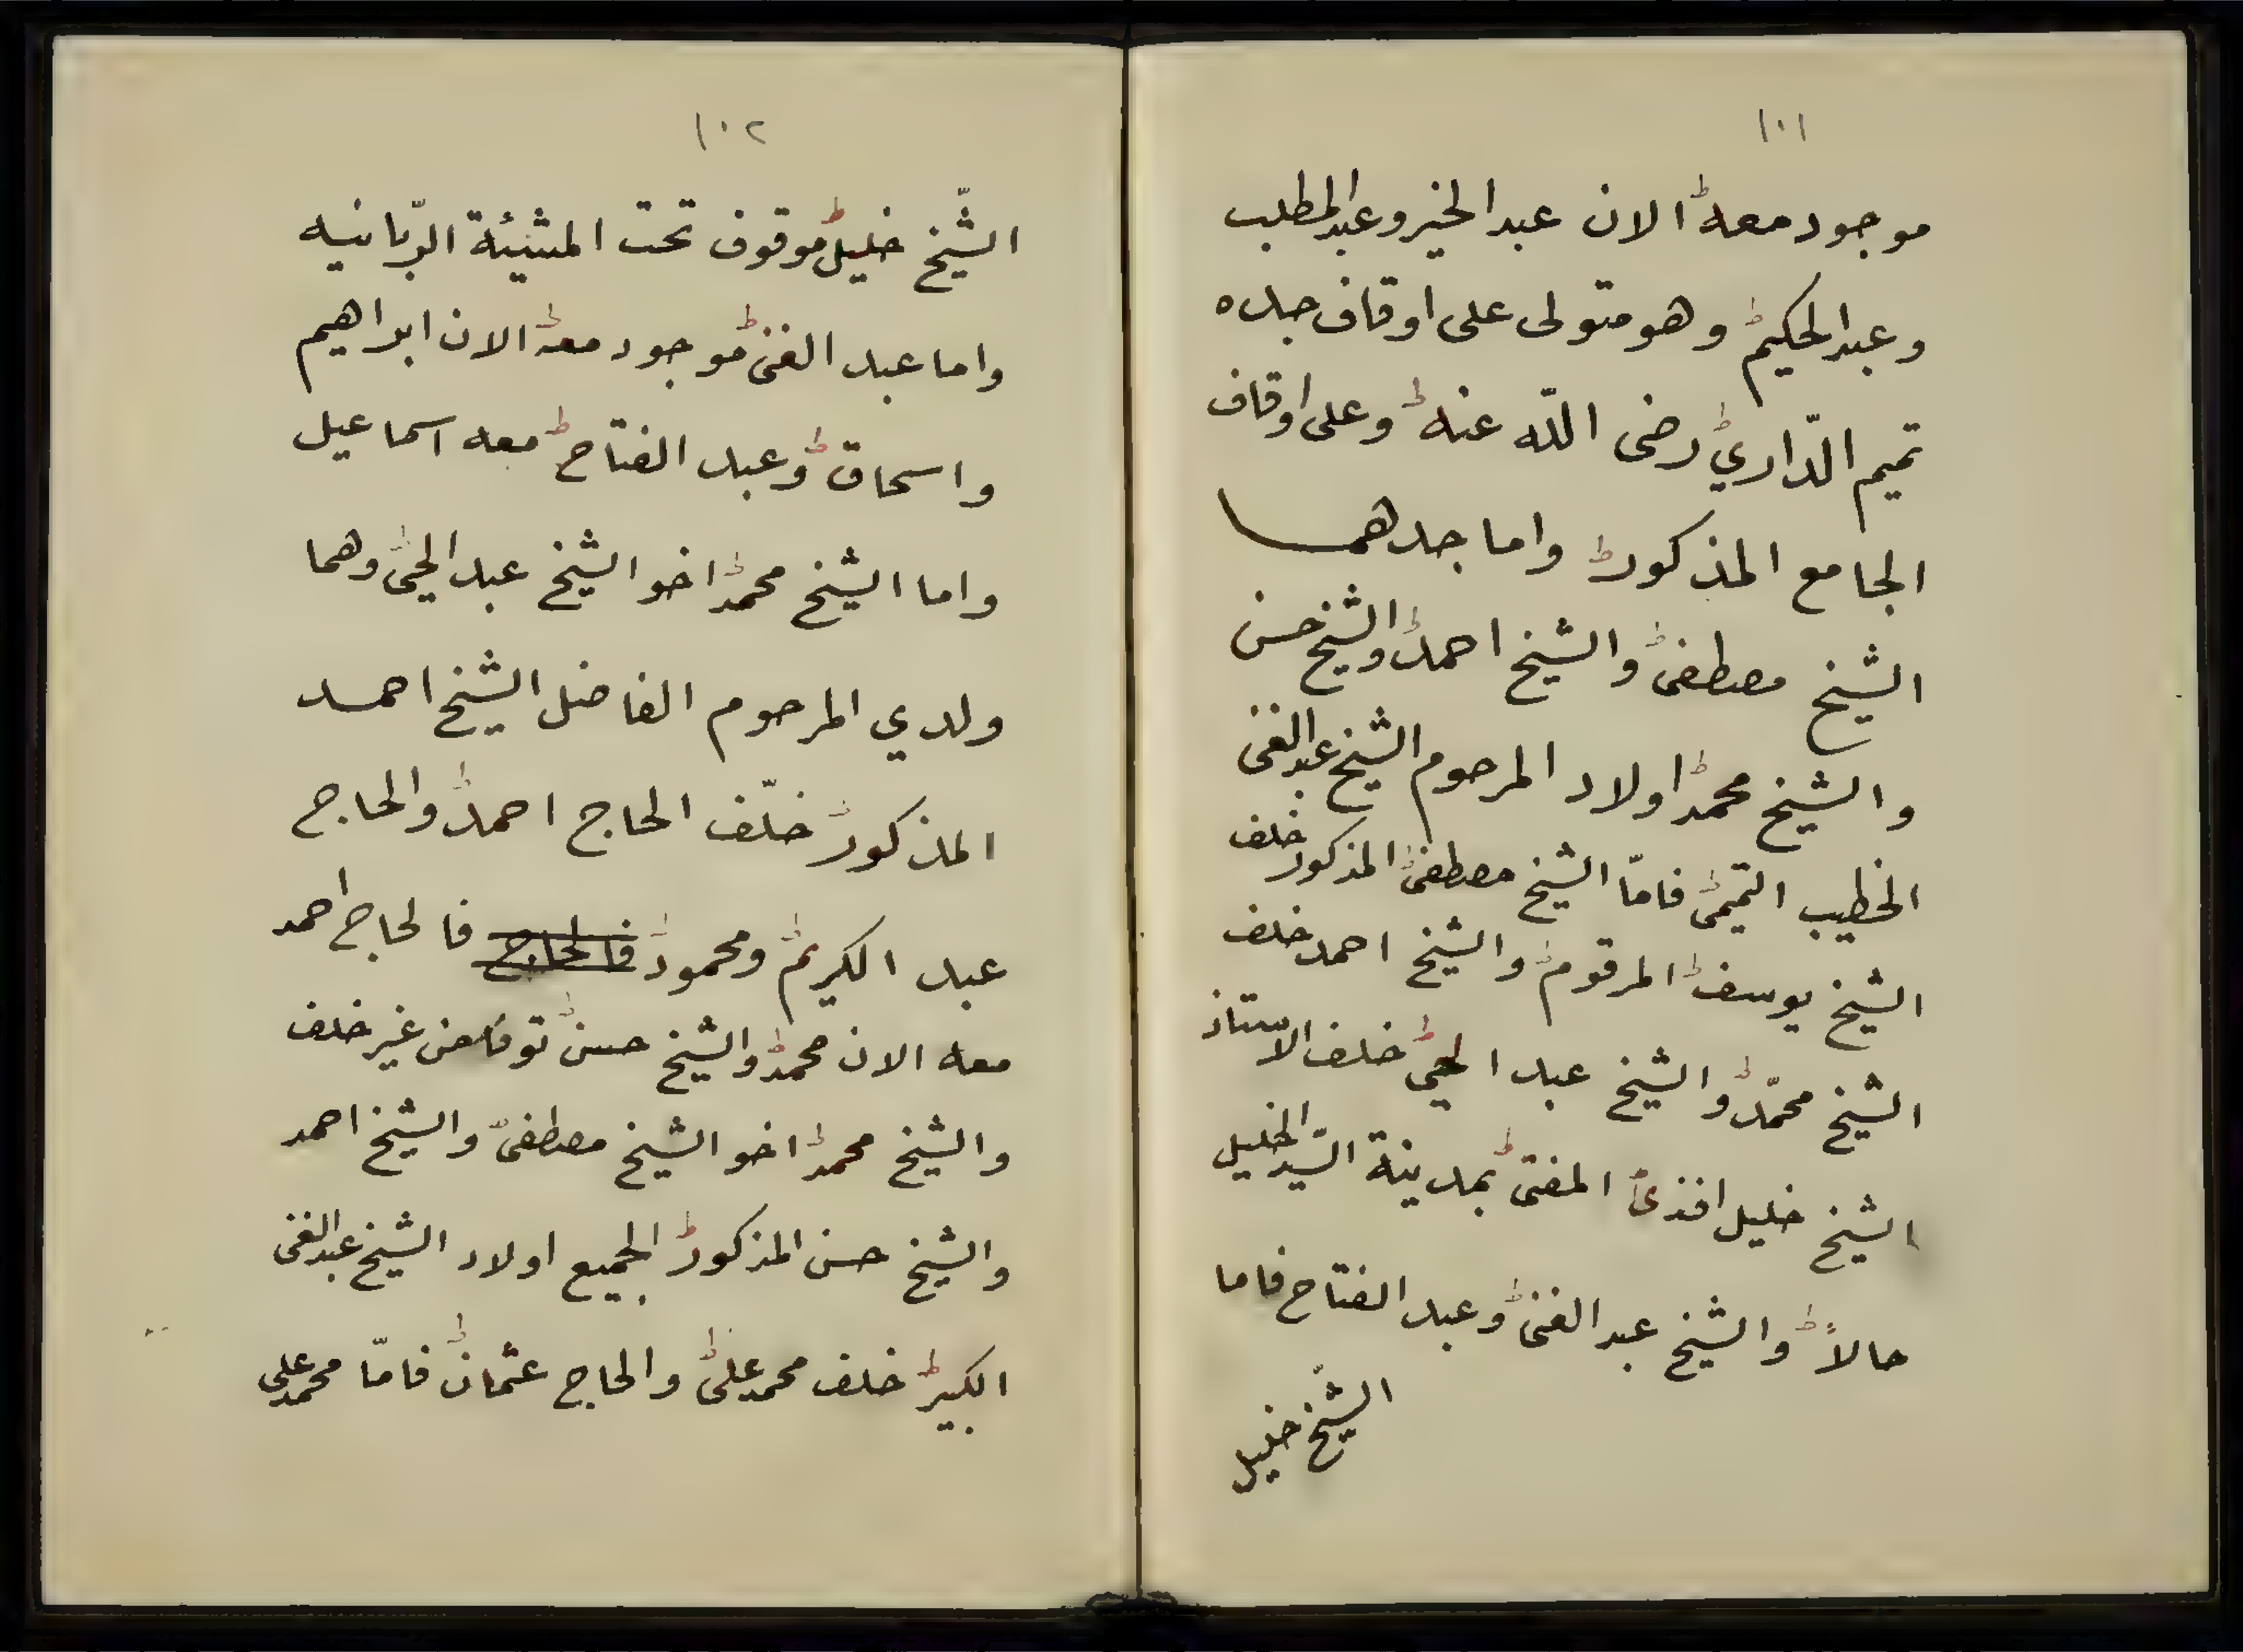 ١٠١
موجود معه الان عبد الخير وعبد المطلب
وعبد الحكيم وهو متولى على اوقاف جده
تميم الدّاري رضى اللّه عنه وعلى اوقاف
الجامع المذكور واما جدهما
الشيخ مصطفى والشيخ احمد والشيخ حسن
والشيخ محمد اولاد المرحوم الشيخ عبد الغنى
الخطيب التميمى فامّا الشيخ مصطفى المذكور خلف
الشيخ يوسف المرقوم والشيخ احمد خلف
الشيخ محمّد والشيخ عبد الحى خلف الاستاذ
الشيخ خليل افندى المفتى بمدينة السّيد الخليل
حالاً والشيخ عبد الغنى وعبد الفتاح فاما
الشّيخ خليل
١٠٢
الشّيخ خليل موقوف تحت المشيئة الربّانيه
واما عبد الغنى موجود معه الان ابراهيم
واسحاق وعبد الفتاح معه اسماعيل
واما الشيخ محمد اخو الشيخ عبد الحى وهما
ولدي المرحوم الفاضل الشيخ احمد
المذكور خلّف الحاج احمد والحاج
عبد الكريم ومحمود فالحاج فالحاج احمد
معه الان محمد والشيخ حسن توفا من غير خلف
والشيخ محمد اخو الشيخ مصطفى والشيخ احمد
والشيخ حسن المذكور الجميع اولاد الشيخ عبد الغنى
الكبير خلف محمد على والحاج عثمان فامّا محمد على